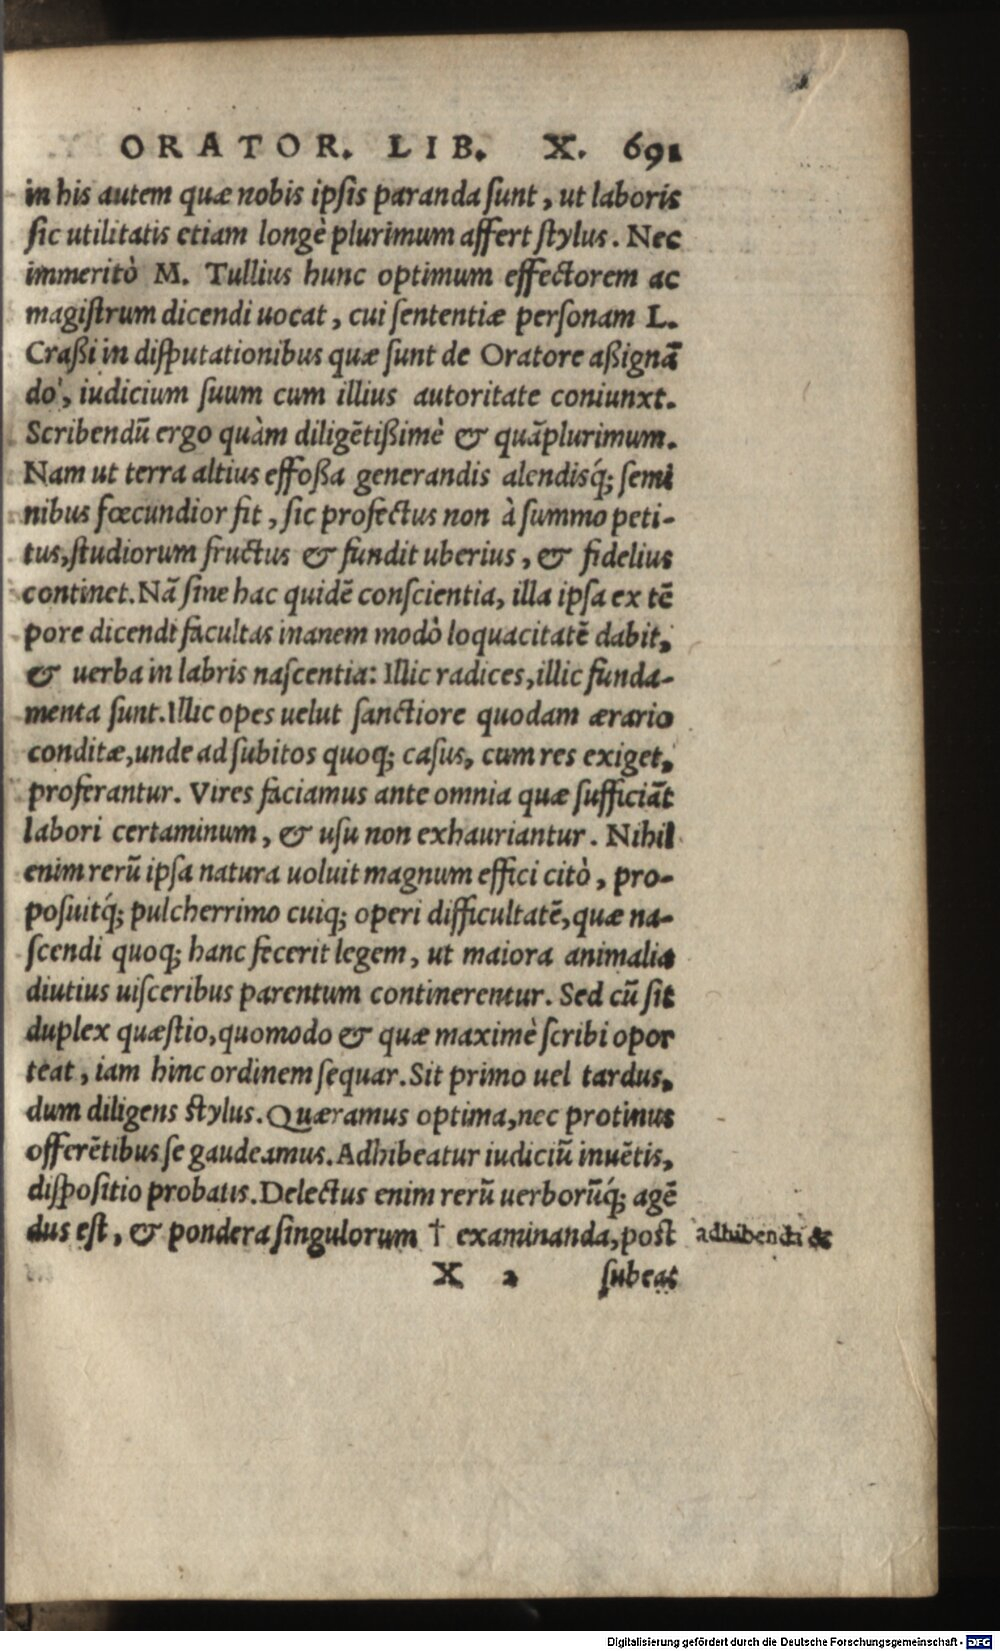 ORATOR. LIB. X. 691
in his autem quæ nobis ipsis paranda sunt, ut laboris
sic utilitatis etiam longè plurimum affert stylus. Nec
immeritò M. Tullius hunc optimum effectorem ac
magistrum dicendi uocat, cui sententiæ personam L.
Craßi in disputationibus quæ sunt de Oratore aßignā
do, iudicium suum cum illius autoritate coniunxt.
Scribendū ergo quàm diligētißimè & quāplurimum.
Nam ut terra altius effoßa generandis alendisq́; semi
nibus fœcundior fit, sic profectus non à summo peti-
tus, studiorum fructus & fundit uberius, & fidelius
continet. Nā sine hac quidē conscientia, illa ipsa ex tē
pore dicendi facultas inanem modò loquacitatē dabit,
& uerba in labris nascentia: Illic radices, illic funda-
menta sunt. Illic opes uelut sanctiore quodam ærario
conditæ, unde ad subitos quoq; casus, cum res exiget,
proferantur. Vires faciamus ante omnia quæ sufficiāt
labori certaminum, & usu non exhauriantur. Nihil
enim rerū ipsa natura uoluit magnum effici citò, pro-
posuitq́; pulcherrimo cuiq; operi difficultatē, quæ na-
scendi quoq; hanc fecerit legem, ut maiora animalia
diutius uisceribus parentum continerentur. Sed cū sit
duplex quæstio, quomodo & quæ maximè scribi opor
teat, iam hinc ordinem sequar. Sit primo uel tardus,
dum diligens stylus. Quæramus optima, nec protinus
offerētibus se gaudeamus. Adhibeatur iudiciū inuētis,
dispositio probatis. Delectus enim rerū uerborūq́; agē
dus est, & pondera singulorum † examinanda, post adhibendi &
X 2 subeat
Digitalisierung gefördert durch die Deutsche Forschungsgemeinschaft - DFG